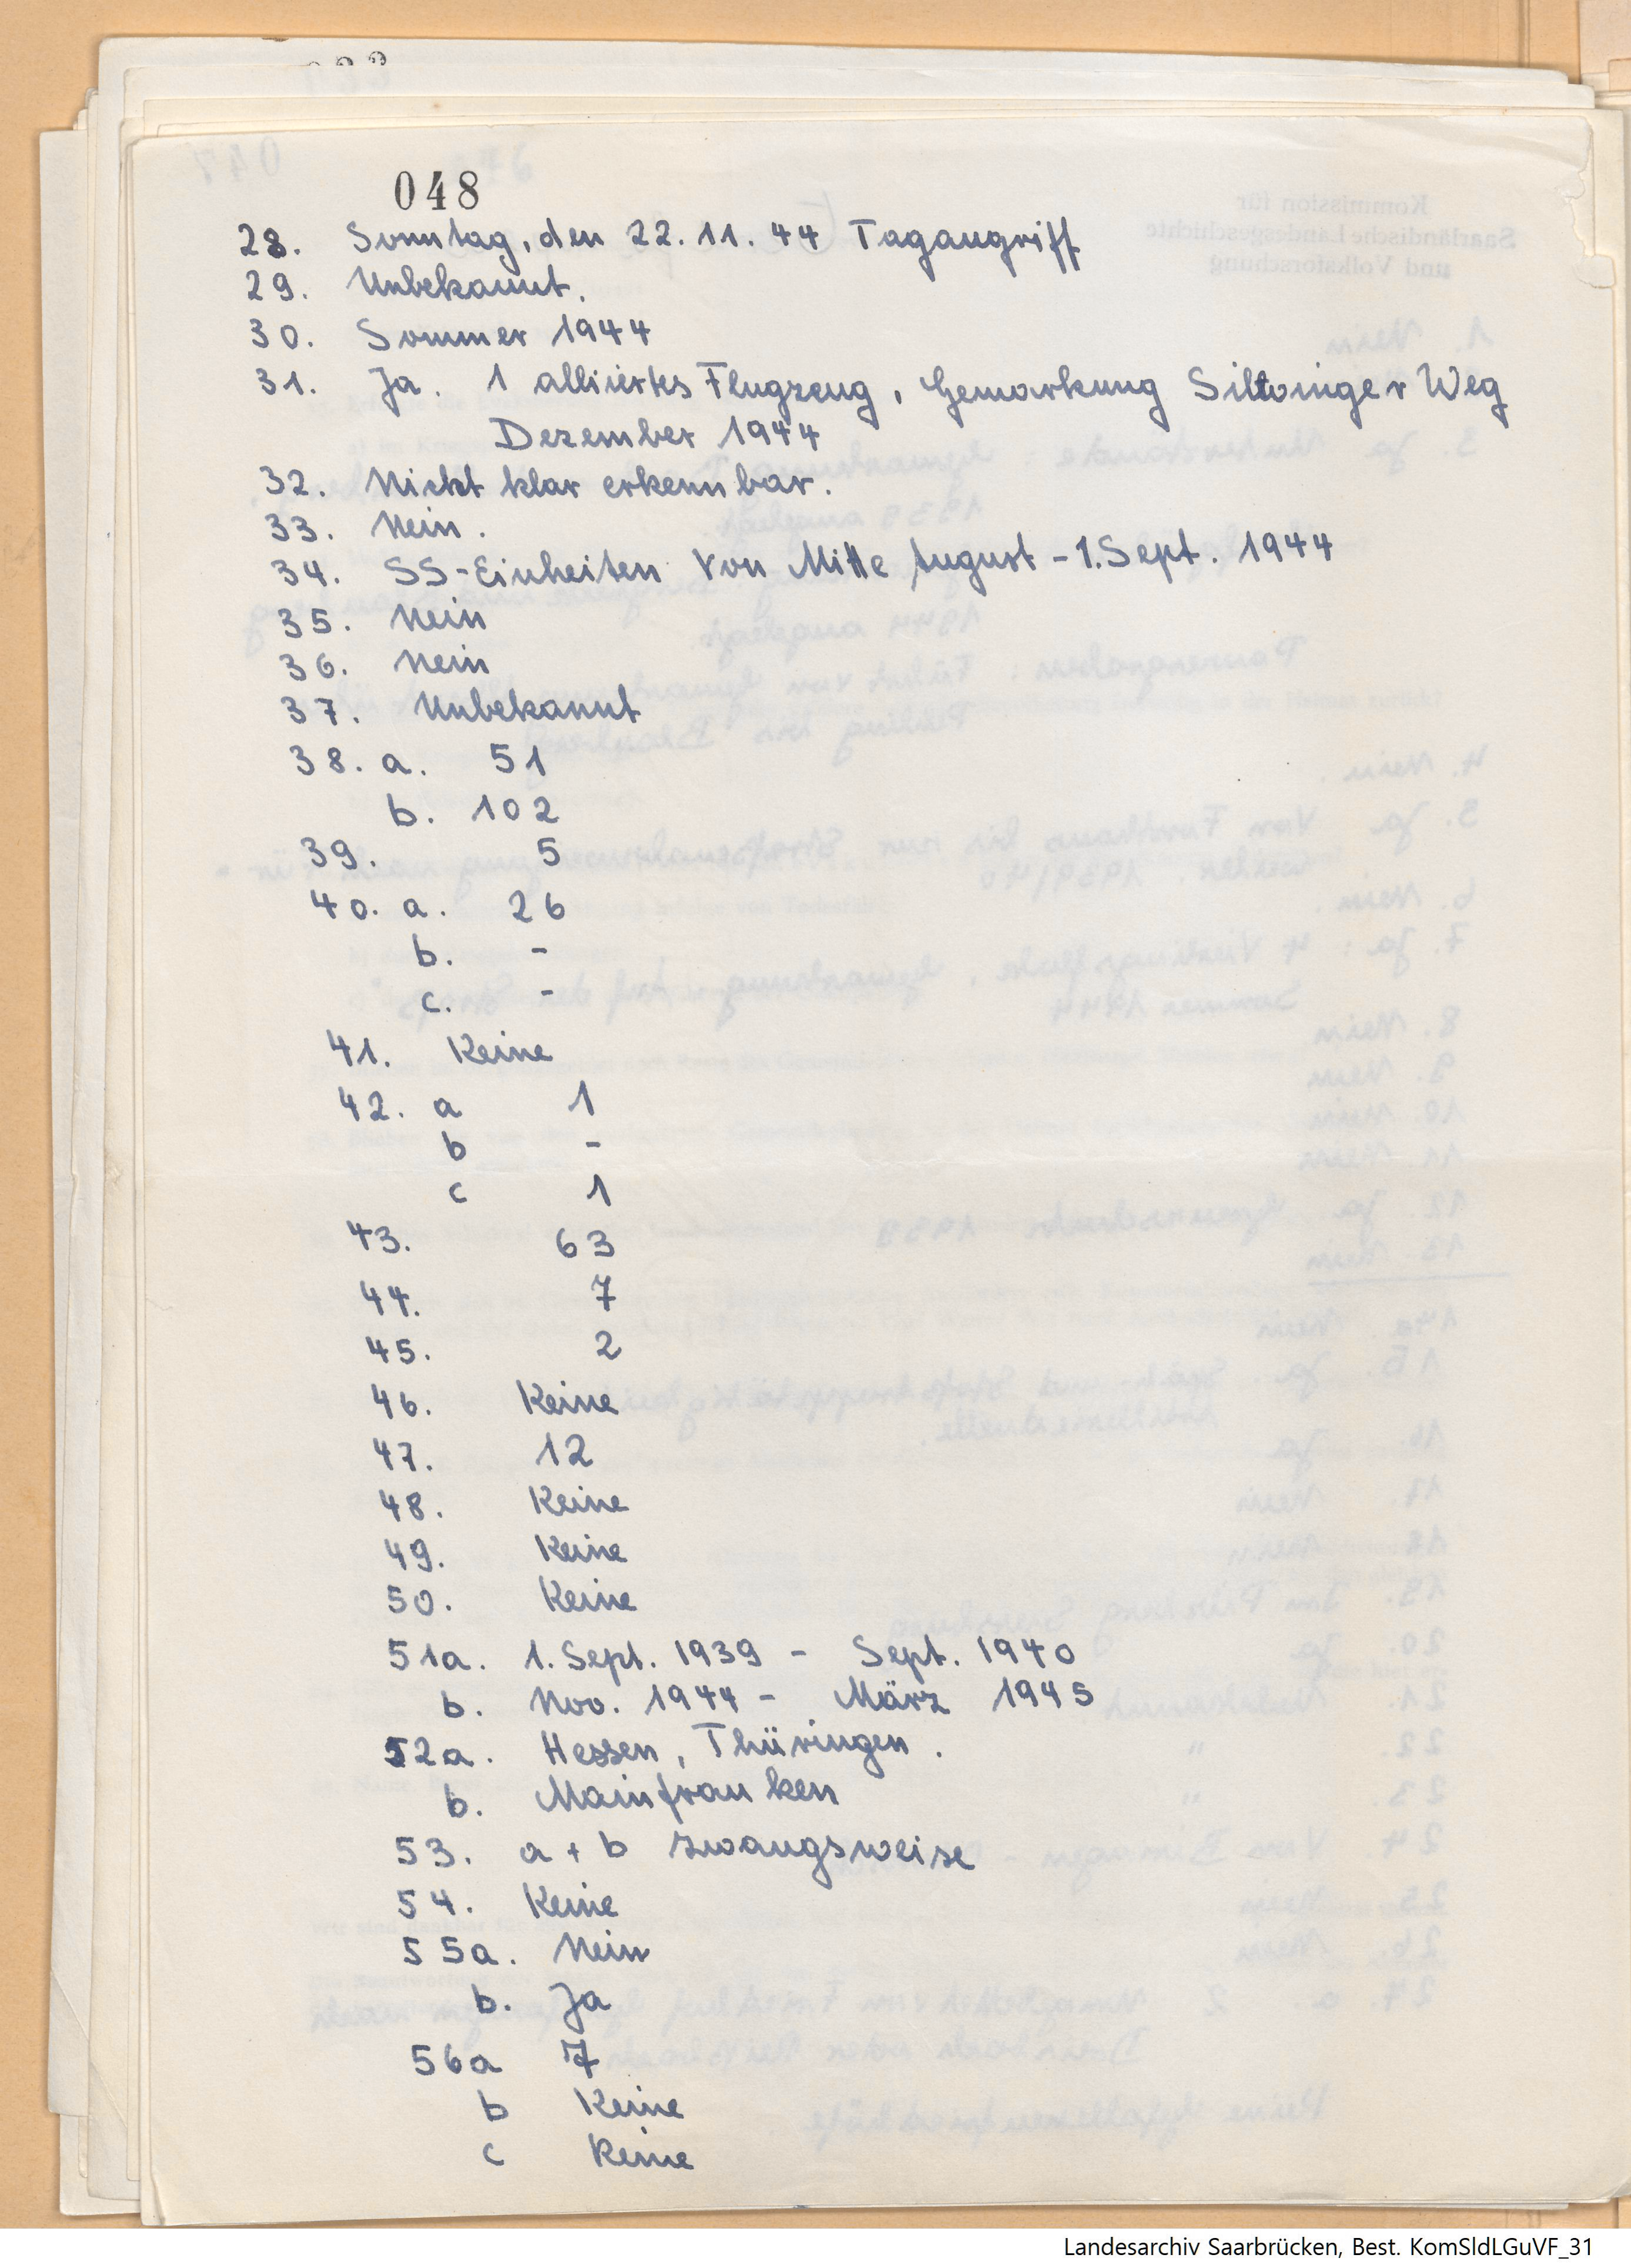 048
28. Sonntag, den 22.11.44 Tagangriff
29. Unbekannt.
30. Sommer 1944
31. Ja. 1 alliiertes Flugzeug, Gemarkung Siltinger Weg
Dezember 1944
32. Nicht klar erkennbar.
33. Nein.
34. SS-Einheiten von Mitte August - 1. Sept. 1944
35. Nein
36. Nein
37. Unbekannt
38. a. 51
b. 102
39. 5
40. a. 26
b. -
c. -
41. Keine
42. a 1
b -
c 1
43. 63
44. 7
45. 2
46. Keine
47. 12
48. Keine
49. Keine
50. Keine
51a. 1. Sept. 1939 - Sept. 1940
b. Nov. 1944 - März 1945
52a. Hessen, Thüringen.
b. Mainfranken
53. a + b zwangsweise
54. Keine
55a. Nein
b. Ja
56a 7
b Keine
c Keine
Landesarchiv Saarbrücken, Best. KomSldLGuVF_31